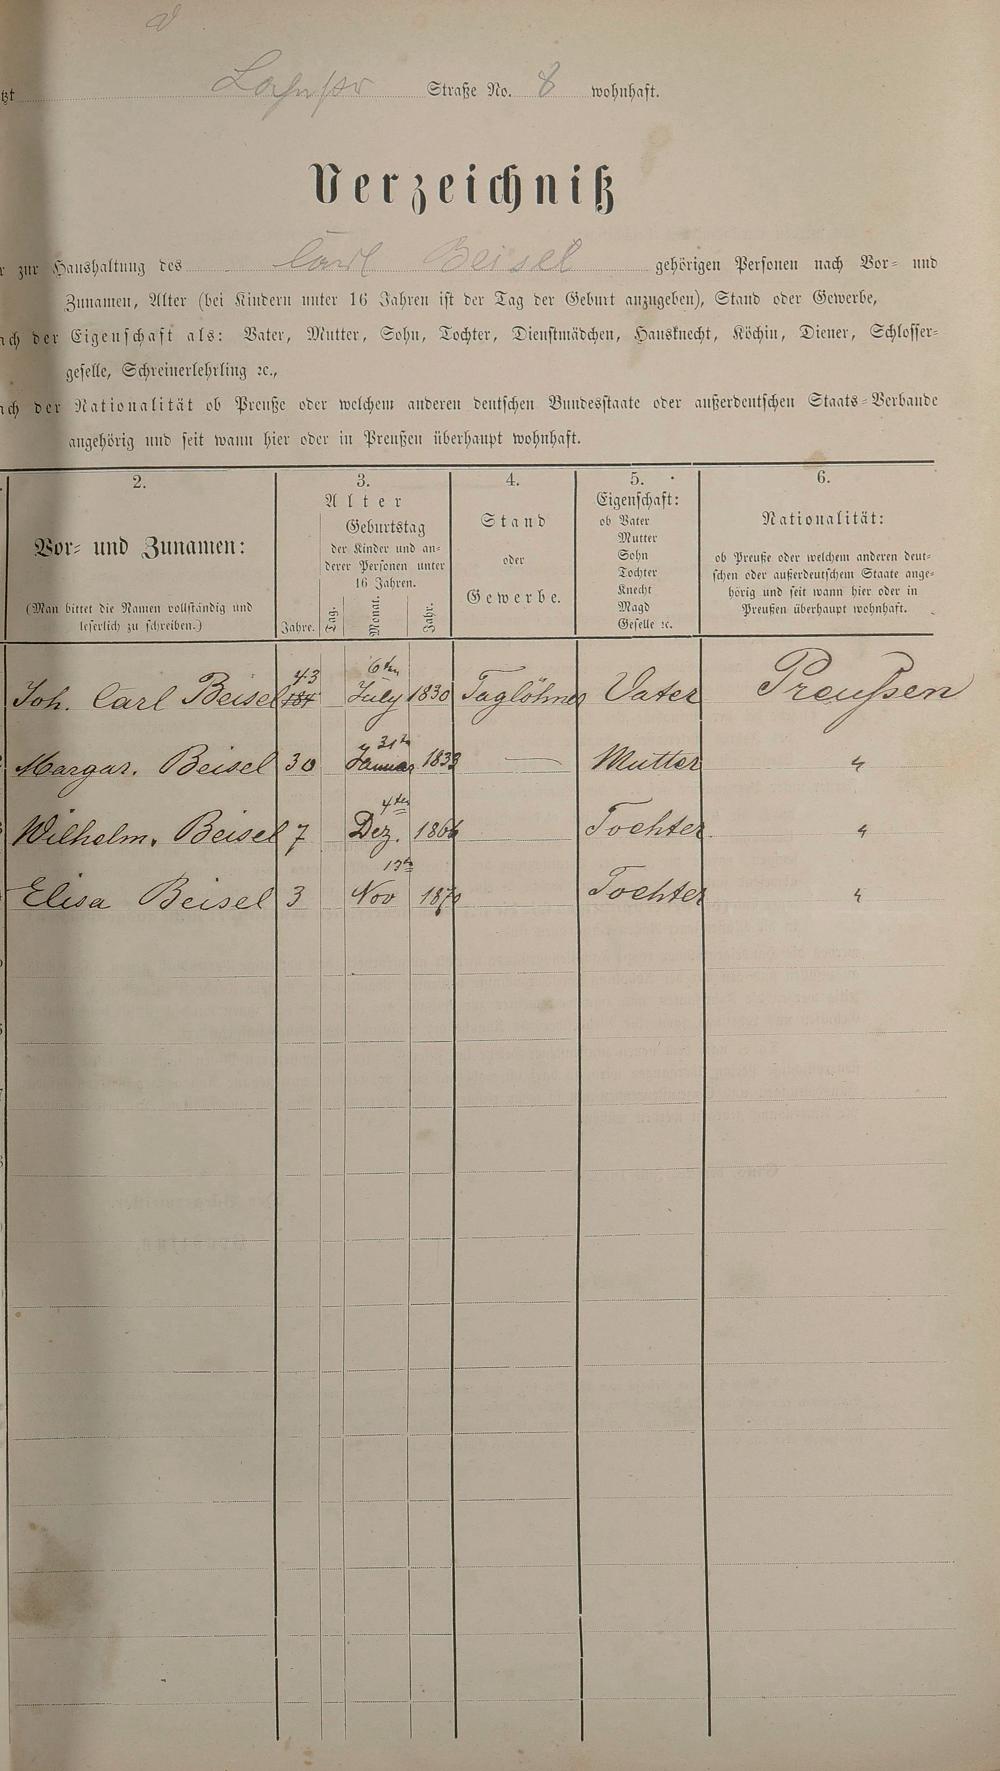 Straße No. 8 wohnhaft.
Verzeichniß
zur Haushaltung des Carl Beisel gehörigen Personen nach Vor- und
Zunamen, Alter (bei Kindern unter 16 Jahren ist der Tag der Geburt anzugeben), Stand oder Gewerbe,
der Eigenschaft als: Vater, Mutter, Sohn, Tochter, Dienstmädchen, Hausknecht, Köchin, Diener, Schlosser-
geselle, Schreinerlehrling ꝛc.,
der Nationalität ob Preuße oder welchem anderen deutschen Bundesstaate oder außerdeutschen Staats-Verbande
angehörig und seit wann hier oder in Preußen überhaupt wohnhaft.
2.
Vor- und Zunamen:
(Man bittet die Namen vollständig und
leserlich zu schreiben.)
3.
Alter
Geburtstag
der Kinder und an-
derer Personen unter
16 Jahren.
Jahre. Tag. Monat. Jahr.
4.
Stand
oder
Gewerbe.
5.
Eigenschaft:
ob Vater
Mutter
Sohn
Tochter
Knecht
Magd
Geselle ꝛc.
6.
Nationalität:
ob Preuße oder welchem anderen deut-
schen oder außerdeutschem Staate ange-
hörig und seit wann hier oder in
Preußen überhaupt wohnhaft.
Joh. Carl Beisel 43 6ten July 1830 Taglöhner Vater Preußen
Margar. Beisel 30 31ten Januar 1833 — Mutter "
Wilhelm. Beisel 7 4ten Dez. 1866 Tochter "
Elisa Beisel 3 13ten Nov 1870 Tochter "